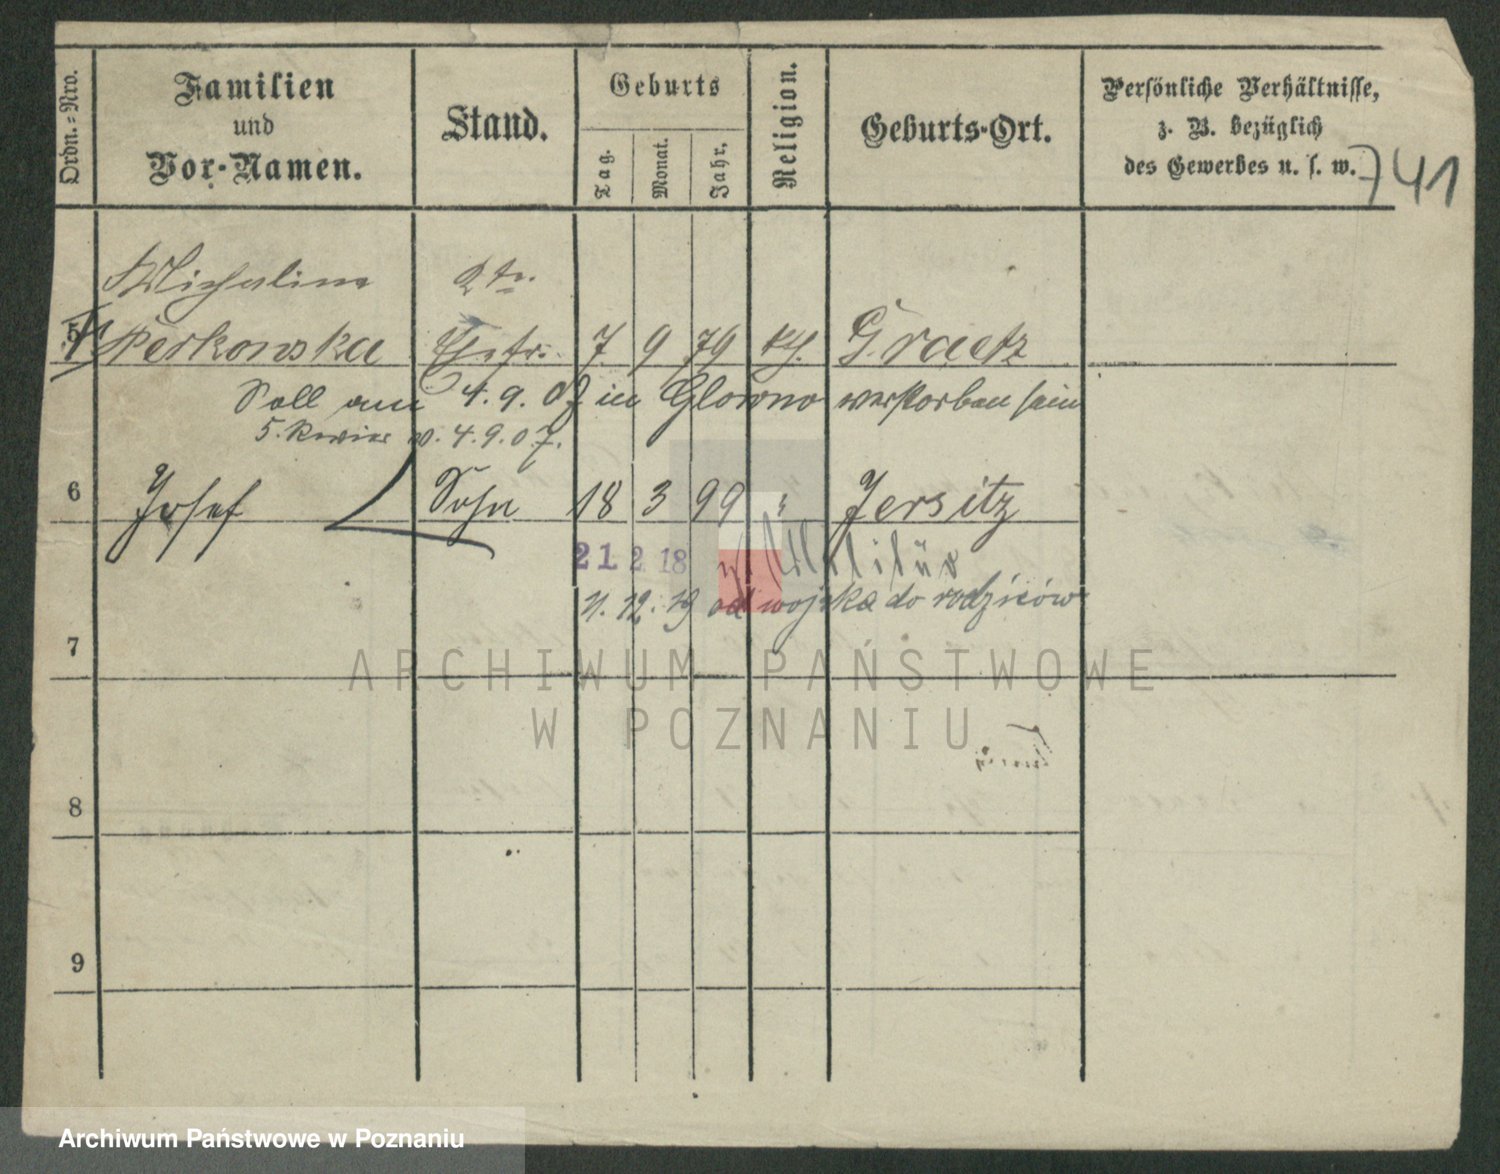 Ordn.=Nro.
Familien
und
Vor-Namen.
Stand.
Geburts
Tag.
Monat.
Jahr,
Religion.
Geburts-Ort.
Persönliche Verhältnisse,
z. B. bezüglich
des Gewerbes u. s. w.
741
Michalina
5 Perkowska Ehefr. 7 9 79 kth. Graetz
Soll am 4.9.07 in Glowno verstorben sein
5. Revier v. 4.9.07.
6 Josef Sohn 18 3 99 " Jersitz
21 2 18 z. Militär
11.12.19 od wojska do rodziców
7
8
9
ARCHIWUM PAŃSTWOWE
W POZNANIU
Archiwum Państwowe w Poznaniu